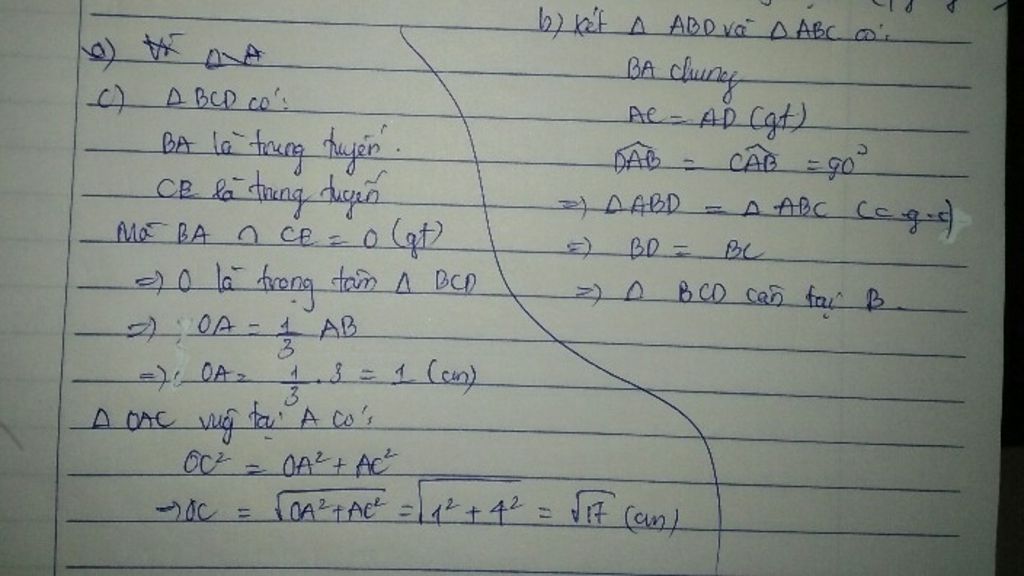 a) Vẽ
c) Δ BCD có:
BA là trung tuyến.
CE là trung tuyến
Mà BA ∩ CE = O (gt)
=> O là trọng tâm Δ BCD
=> OA = 1/3 AB
=> OA = 1/3 . 3 = 1 (cm)
Δ OAC vug tại A có:
OC² = OA² + AC²
=> OC = √(OA² + AC²) = √(1² + 4²) = √17 (cm)
b) Xét Δ ABD và Δ ABC có:
BA chung
AC = AD (gt)
DAB = CAB = 90°
=> Δ ABD = Δ ABC (c-g-c)
=> BD = BC
=> Δ BCD cân tại B.